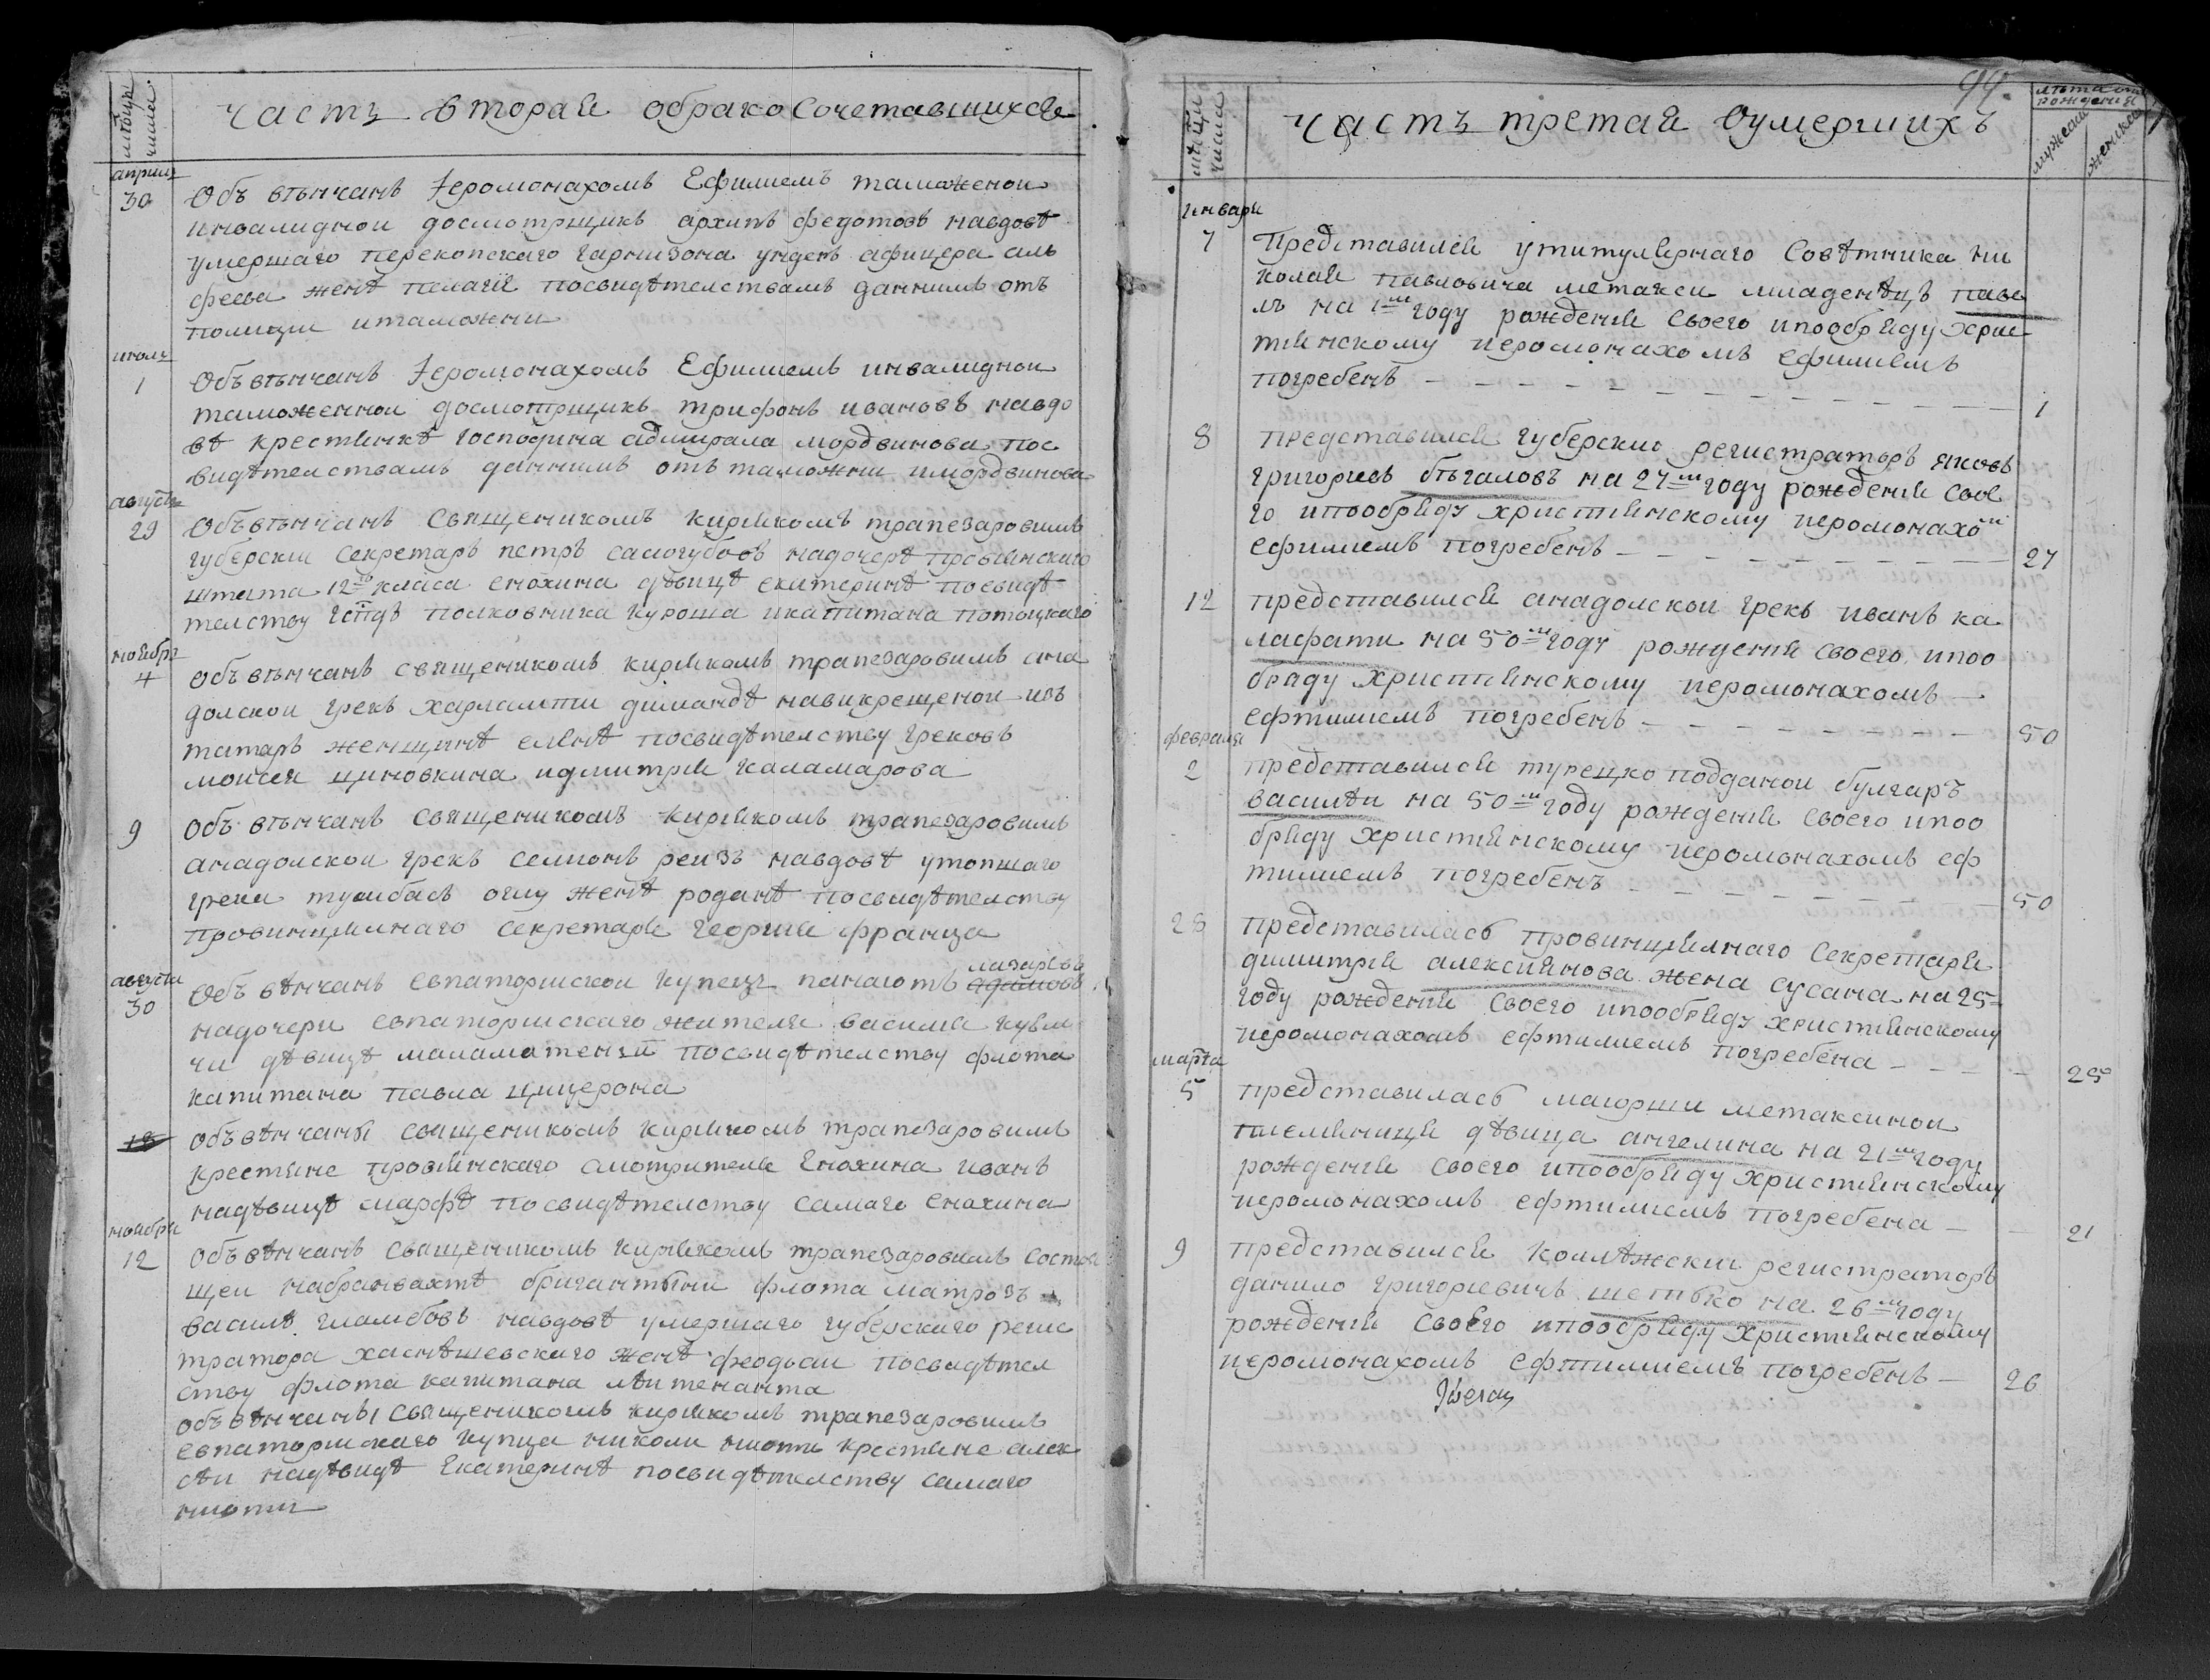 мѣсяцы
числа
часть вторая обракосочетавшихся
априля
30
Объ вѣнчанъ Іеромонахомъ Ефимиемъ таможенои
инвалиднои досмотрщикъ архипъ федотовъ навдовѣ
умершаго перекопскаго гарнизона ундеръ афицера аль
феева женѣ пелагіе посвидѣтелствамъ даннимъ отъ
полиции итаможни
июля
1
Объ вѣнчанъ Іеромонахомъ Ефимиемъ инвалиднои
таможеннои досмотрщикъ трифонъ ивановъ навдо
вѣ крестянкѣ господина адмирала мордвинова пос
видѣтелствамъ даннимъ отъ таможни имордвинова
августа
29
Объ вѣнчанъ Священикомъ кирякомъ трапезаровимъ
губерски секретарь петръ самогубовъ надочерѣ провіянскаго
штата 12го класа енохина дѣвицѣ екатеринѣ посвидѣ
телству гспдъ полковника куроша икапитана потоцкаго
ноября
4
объ вѣнчанъ священикомъ кирякомъ трапезаровимъ ана
долскои грекъ харлампи димандѣ навикрещенои изъ
татаръ женщинѣ еленѣ посвидѣтелству грековъ
моисея циновкина идмитрия каламарова
9
Объ вѣнчанъ священикомъ кирякомъ трапезаровимъ
анадолскои грекъ семионъ реизъ навдовѣ утопшаго
грека туибасъ оглу женѣ роданѣ посвидѣтелству
провинциялнаго секретаря георгия франца
августа
30
Объ вѣнчанъ евпаторискои купецъ панаютъ адамовъ лазаревъ
надочери евпаторискаго жителя василия кузм
чи дѣвицѣ маламатении посвидѣтелству флота
капитана павла цицерона
18
объ вѣнчаны священикомъ кирякомъ трапезаровимъ
крестяне провіянскаго смотрителя Енохина иванъ
надѣвицѣ марфѣ посвидѣтелству самаго енохина
ноября
12
Объ вѣнчанъ священикомъ кирякомъ трапезаровимъ состоя
щеи набранвахтѣ бригантыни флота матрозъ
василѣ гламбовъ навдовѣ умершаго губерскаго регис
тратора хаснѣшевскаго женѣ феодоси посвидѣтел
ству флота капитана лѣитенанта
объ вѣнчаны священикомъ кирякомъ трапезаровимъ
евпаторискаго купца николи ниоти крестяне алек
сѣи надѣвицѣ Екатеринѣ посвидѣтелству самаго
ниоти
99.
мѣсяцы
числа
часть третая оумершихъ
лѣта отъ
рождения
мужеска
женска
января
7
Представился утитулярнаго Совѣтника ни
колая павловича метакси младенѣцъ паве
лъ на 1мъ году рождения своего ипообряду хрис
тиянскому иеромонахомъ ефимиемъ
погребенъ
1
8
представился губерскио регистраторъ яковъ
григориевъ бѣгаловъ на 27мъ году рождения свое
го ипообряду християнскому иеромонахомъ
ефимиемъ погребенъ
27
12
представился анадолскои грекъ иванъ ка
лафати на 50мъ году рождения своего ипоо
бряду християнскому иеромонахомъ
ефтимиемъ погребенъ
50
февраля
2
представился турецко подданои булгаръ
василѣи на 50мъ году рождения своего ипоо
бряду християнскому иеромонахомъ еф
тимиемъ погребенъ
50
28
представилась провинциялнаго секретаря
димитрия алексиянова жена сусана на 25
году рождения своего ипообряду християнскому
иеромонахомъ ефтимиемъ погребена
25
марта
5
представилась маиорши метаксинои
племянница дѣвица ангелина на 21мъ году
рождения своего ипообряду християнскому
иеромонахомъ ефтимиемъ погребена
21
9
представился коллѣжски регистраторъ
данило григориевичъ шетько на 26мъ году
рождения своего ипообряду християнскому
иеромонахомъ ефтимиемъ погребенъ
26